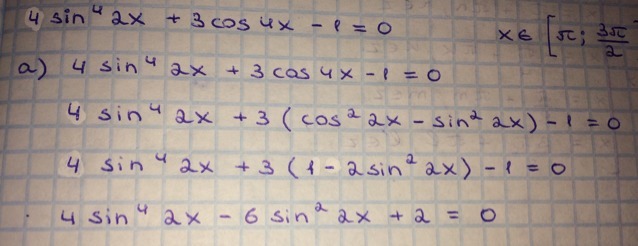 4 sin⁴ 2x + 3 cos 4x - 1 = 0 x ∈ [π; 3π/2
а) 4 sin⁴ 2x + 3 cos 4x - 1 = 0
4 sin⁴ 2x + 3 (cos² 2x - sin² 2x) - 1 = 0
4 sin⁴ 2x + 3 (1 - 2 sin² 2x) - 1 = 0
4 sin⁴ 2x - 6 sin² 2x + 2 = 0